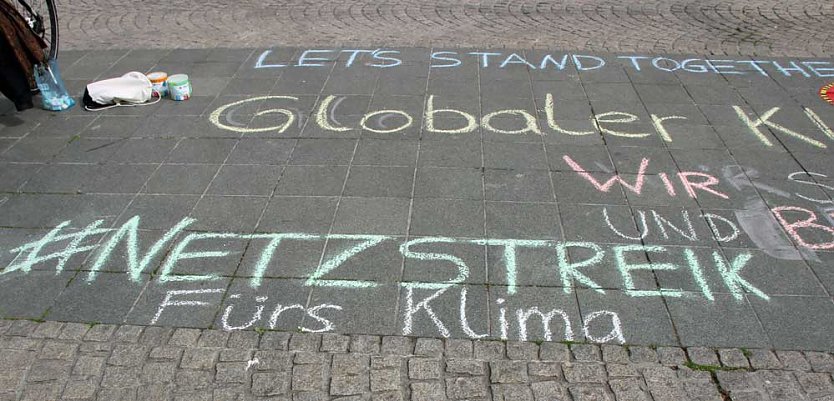 LET'S STAND TOGETHE
GLOBALER K
WIR S
UND B
#NETZSTREIK
Fürs Klima